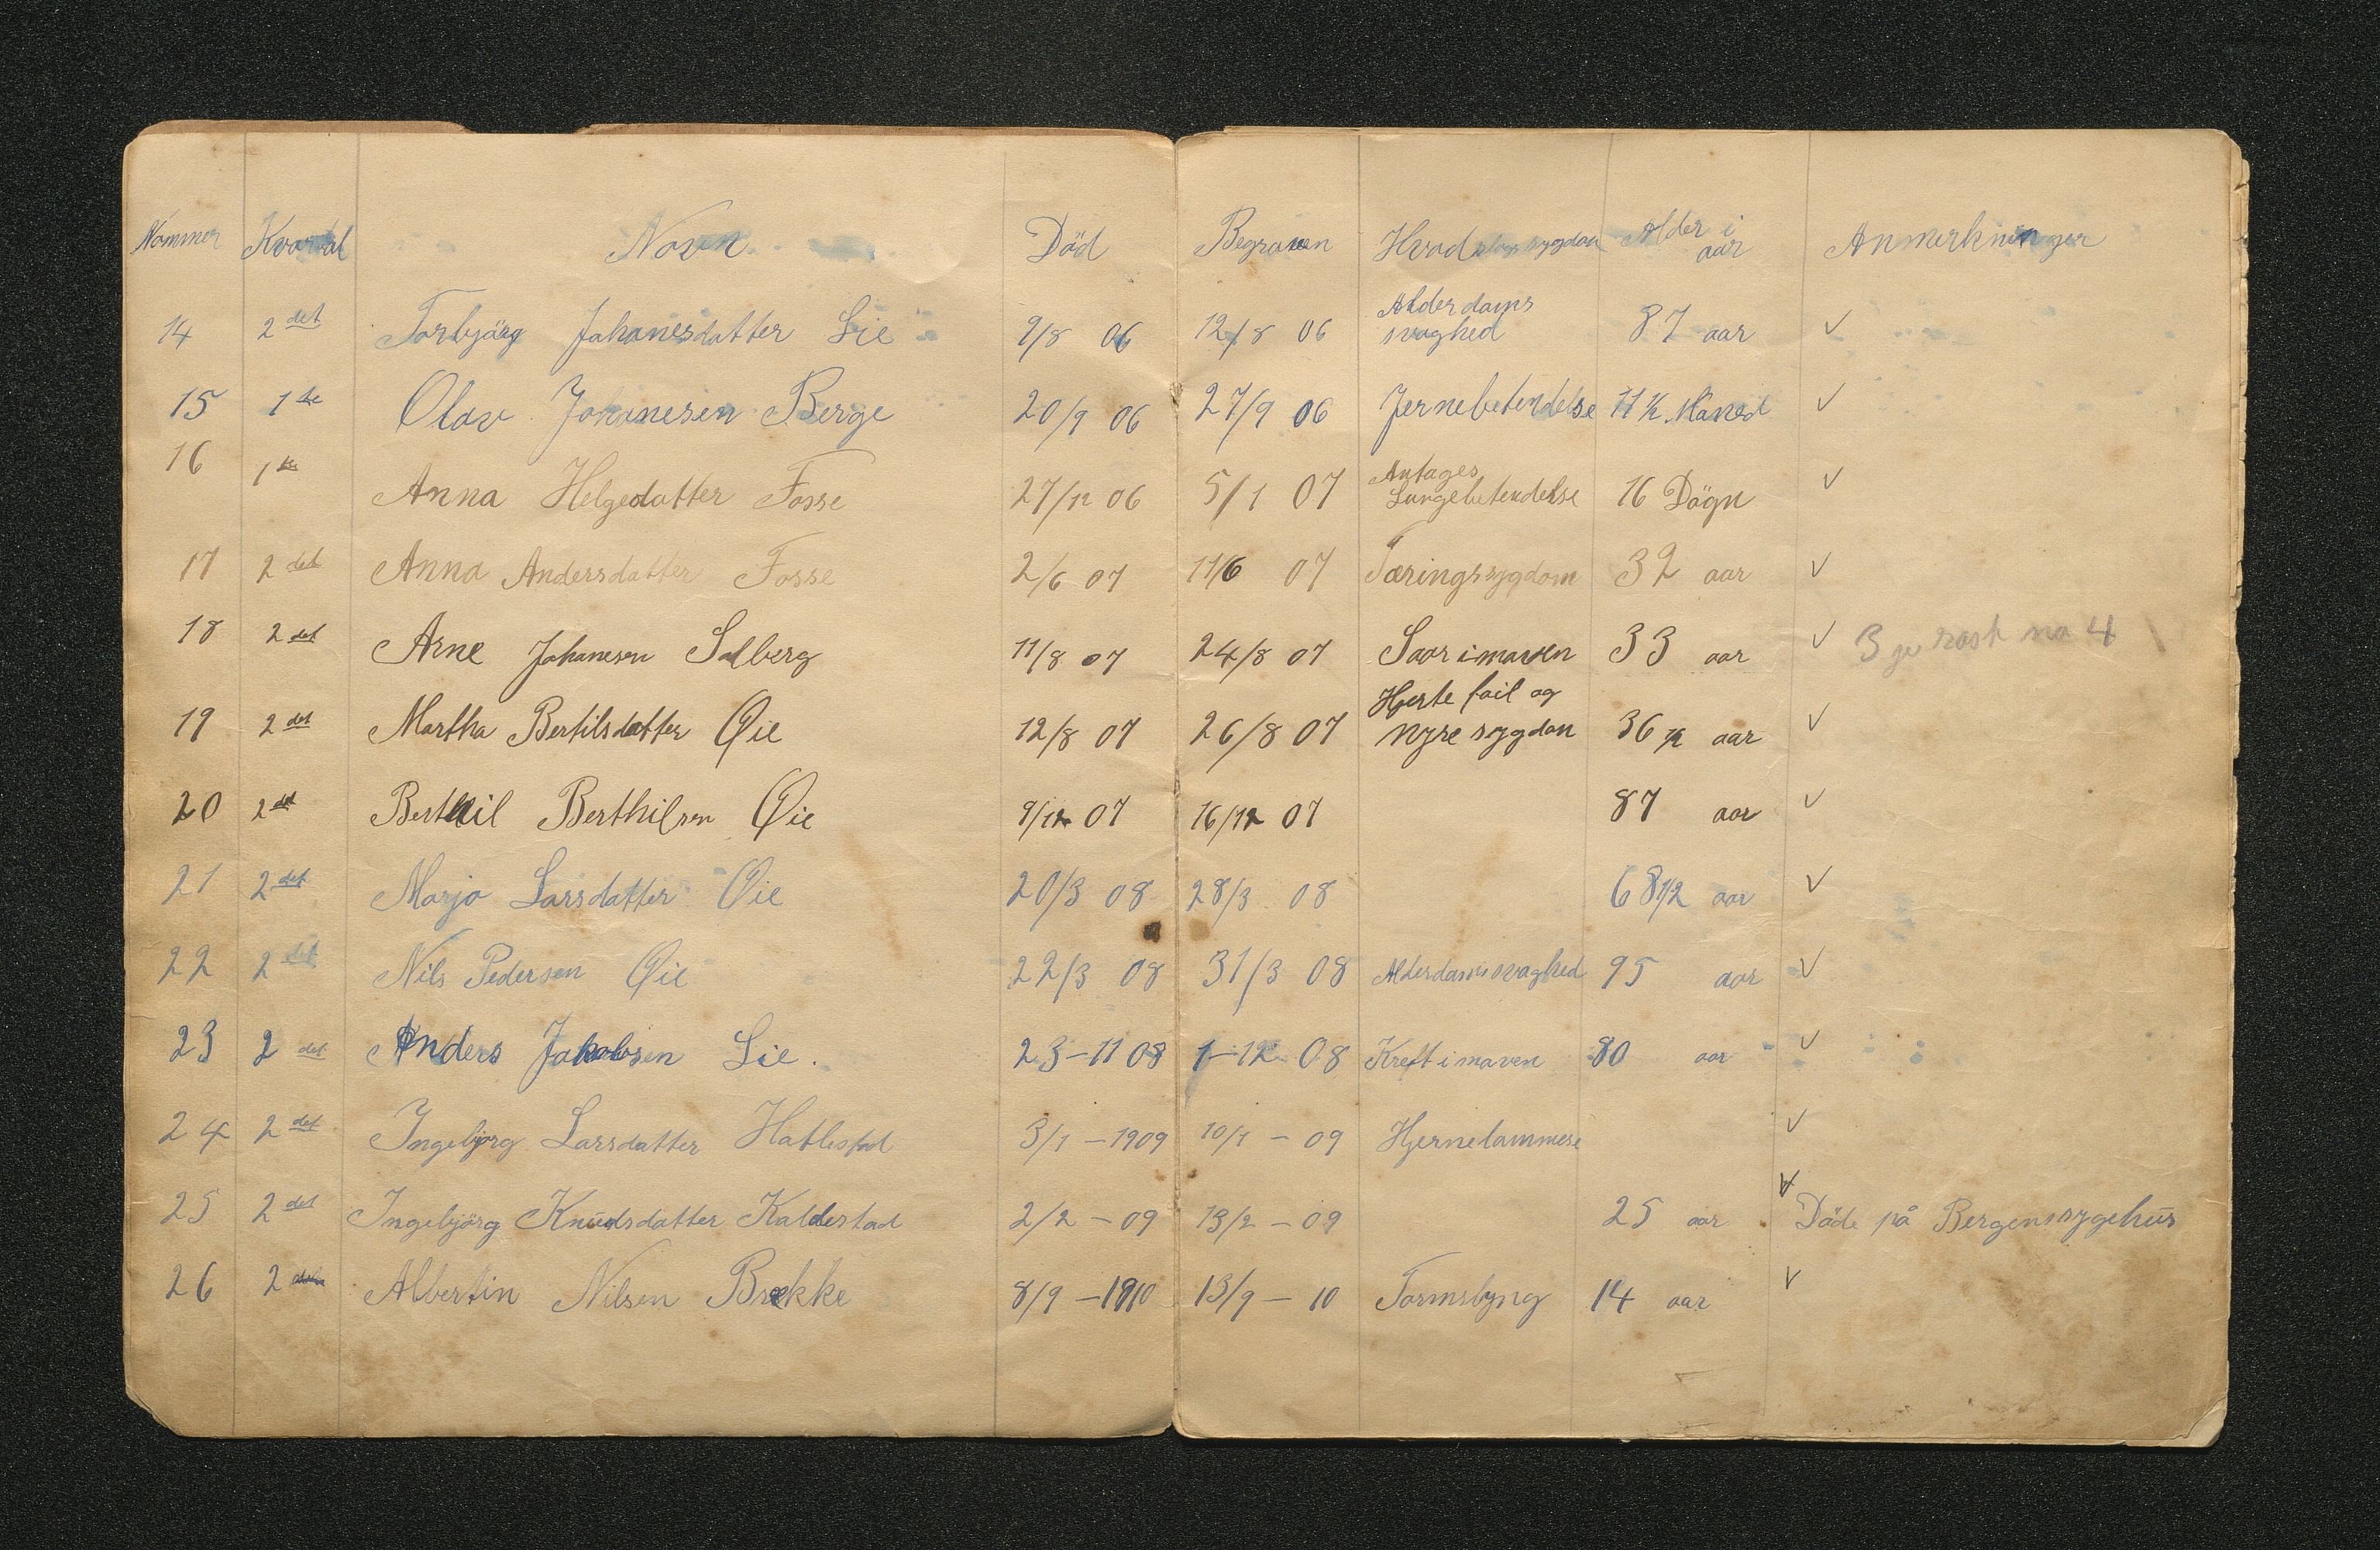 Nommer Kvartal Navn Död Begraven Hvad slags sygdom Alder i aar Anmerkninger
14 2det Torbjörg Johanesdatter Lie 9/8 06 12/8 06 Alderdams svaghed 87 aar ✓
15 1te Olav Johanesen Berge 20/9 06 27/9 06 Jernebetendelse 11 ½ Måned ✓
16 1te Anna Helgedatter Fosse 27/12 06 5/1 07 Antages Lungebetendelse 16 Dögn ✓
17 2det Anna Andersdatter Fosse 2/6 07 11/6 07 Tæringssygdom 32 aar ✓
18 2det Arne Johanesen Solberg 11/8 07 24/8 07 Saar i maven 33 aar ✓ 3 na 4
19 2det Martha Bertilsdatter Øie 12/8 07 26/8 07 Hjerte fail og nyre sygdom 36 ½ aar ✓
20 2det Berthil Berthilsen Øie 9/12 07 16/12 07 87 aar ✓
21 2det Marja Larsdatter Øie 20/3 08 28/3 08 68 1/2 aar ✓
22 2det Nils Pedersen Øie 22/3 08 31/3 08 Alderdamssvaghed 95 aar ✓
23 2det Anders Jakobsen Lie. 23-11 08 1-12 08 Kreft i maven 80 aar ✓
24 2det Ingebjørg Larsdatter Hatlestad 3/1 - 1909 10/1 - 09 Hjernelammese ✓
25 2det Ingebjörg Knudsdatter Kaldestad 2/2 - 09 13/2 - 09 25 aar ✓ Döde på Bergensygehus
26 2det Albertin Nilsen Brekke 8/9 - 1910 13/9 - 10 Tarmslyng 14 aar ✓